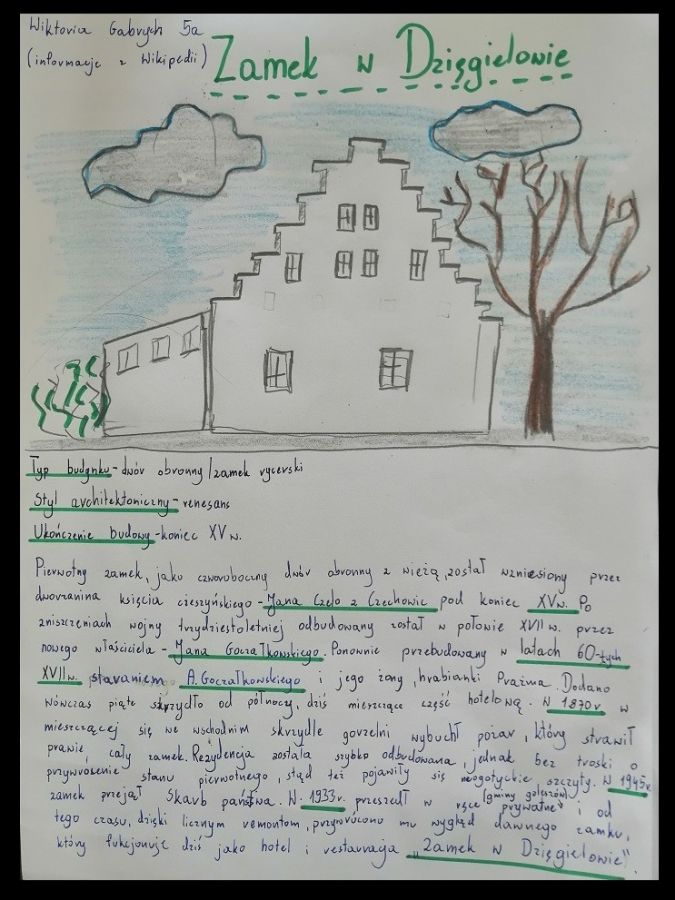 Wiktoria Gabrych 5a
(informacje z Wikipedii)
Zamek w Dzięgielowie
Typ budynku - dwór obronny/zamek rycerski
Styl architektoniczny - renesans
Ukończenie budowy - koniec XV w.
Pierwotny zamek, jako czworoboczny dwór obronny z wieżą, został wzniesiony przez
dworzanina księcia cieszyńskiego - Jana Czelo z Czechowic pod koniec XV w. Po
zniszczeniach wojny trzydziestoletniej odbudowany został w połowie XVII w. przez
nowego właściciela - Jana Goczałkowskiego. Ponownie przebudowany w latach 60-tych
XVII w. staraniem A. Goczałkowskiego i jego żony, hrabianki Prażma. Dodano
wówczas piąte skrzydło od północy, dziś mieszczące część hotelową. W 1870 r. w
mieszczącej się we wschodnim skrzydle gorzelni wybuchł pożar, który strawił
prawie cały zamek. Rezydencja została szybko odbudowana, jednak bez troski o
przywrócenie stanu pierwotnego, stąd też pojawiły się neogotyckie szczyty. W 1945r.
zamek przejął Skarb państwa. W 1933r. przeszedł w ręce prywatne (gminy goleszów) i od
tego czasu, dzięki licznym remontom, przywrócono mu wygląd dawnego zamku,
który fukcjonuje dziś jako hotel i restauracja "Zamek w Dzięgielowie".